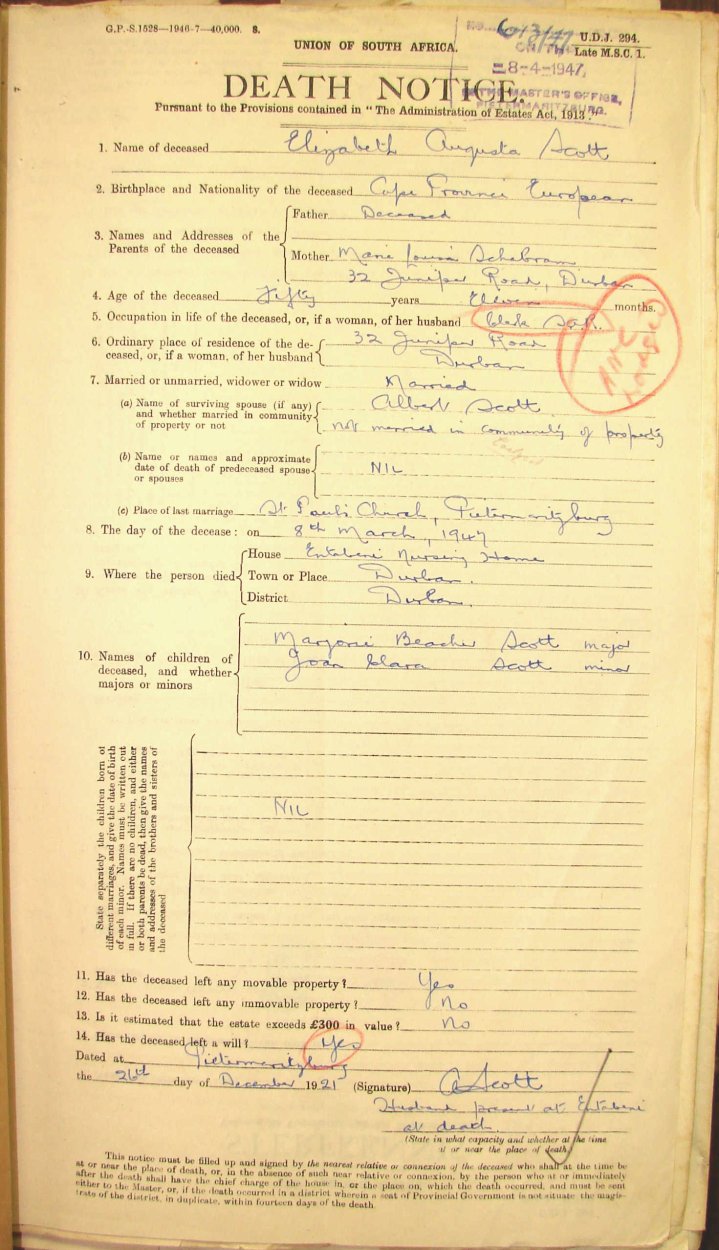 G.P.-S.1528—1946-7—40,000. S.
UNION OF SOUTH AFRICA.
U.D.J. 294.
Late M.S.C. 1.
NO. 613/47
ON THE
8-4-1947
THE MASTER'S OFFICE,
PIETERMARITZBURG.
DEATH NOTICE,
Pursuant to the Provisions contained in "The Administration of Estates Act, 1913."
1. Name of deceased Elizabeth Augusta Scott
2. Birthplace and Nationality of the deceased Cape Province European
3. Names and Addresses of the Parents of the deceased
Father Deceased
Mother Marie Louisa Schabram
32 Juniper Road, Durban
4. Age of the deceased Fifty years Eleven months.
5. Occupation in life of the deceased, or, if a woman, of her husband Clerk S.A.R.
6. Ordinary place of residence of the deceased, or, if a woman, of her husband 32 Juniper Road
Durban
7. Married or unmarried, widower or widow Married
(a) Name of surviving spouse (if any) and whether married in community of property or not
Albert Scott
Not married in community of property
(b) Name or names and approximate date of death of predeceased spouse or spouses
NIL
(c) Place of last marriage St. Paul's Church, Pietermaritzburg
8. The day of the decease: on 8th March, 1947
9. Where the person died
House Entabeni Nursing Home
Town or Place Durban.
District Durban.
10. Names of children of deceased, and whether majors or minors
Marjorie Beacher Scott major
Joan Clara Scott minor
State separately the children born of different marriages, and give the date of birth of each minor. Names must be written out in full. If there are no children, and either or both parents be dead, then give the names and addresses of the brothers and sisters of the deceased
NIL
11. Has the deceased left any movable property? Yes
12. Has the deceased left any immovable property? No
13. Is it estimated that the estate exceeds £300 in value? No
14. Has the deceased left a will? Yes
Dated at Pietermaritzburg
the 26th day of December 1921 (Signature) A Scott
Husband present at Entabeni
at death
(State in what capacity and whether at the time
at or near the place of death)
This notice must be filled up and signed by the nearest relative or connexion of the deceased who shall at the time be
at or near the place of death, or, in the absence of such near relative or connexion, by the person who at or immediately
after the death shall have the chief charge of the house in, or the place on, which the death occurred, and must be sent
either to the Master, or, if the death occurred in a district wherein a seat of Provincial Government is not situate the magis-
trate of the district, in duplicate, within fourteen days of the death